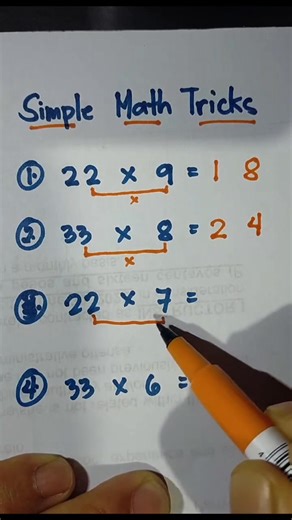 Simple Math Tricks
1. 22 × 9 = 1 8
×
2. 33 × 8 = 2 4
×
3. 22 × 7 =
4. 33 × 6 =